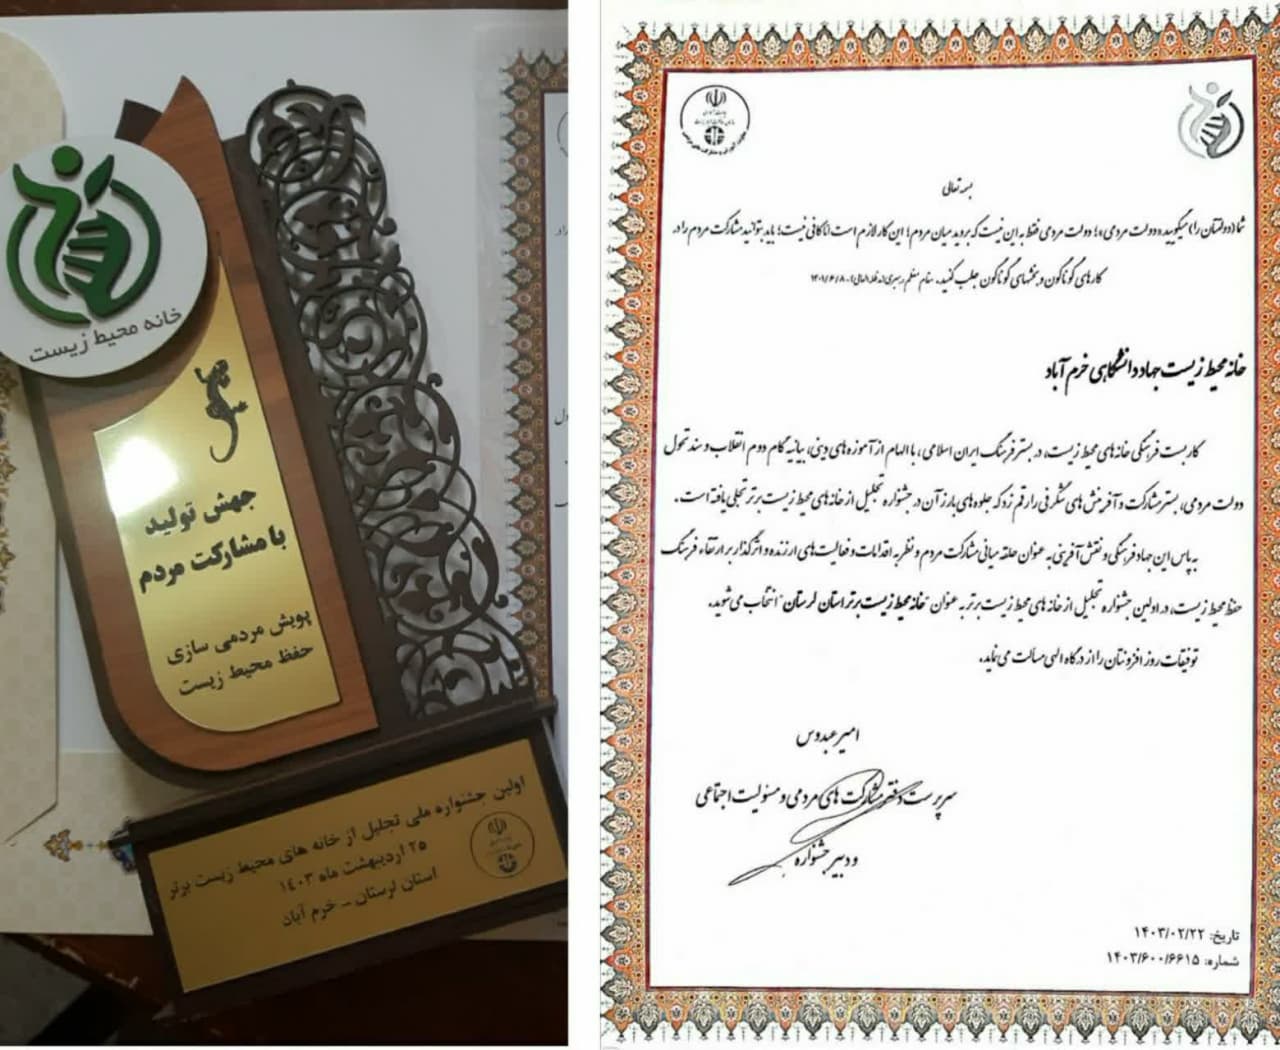 خانه محیط زیست
جهش تولید
با مشارکت مردم
پویش مردمی سازی
حفظ محیط زیست
اولین جشنواره ملی تجلیل از خانه های محیط زیست برتر
۲۵ اردیبهشت ماه ۱۴۰۳
استان لرستان - خرم آباد
بسمه تعالی
شما (دولتتان را) میگویید «دولت مردمی»؛ دولت مردمی فقط به این نیست که بروید میان مردم؛ این کار لازم است اما کافی نیست؛ باید بتوانید مشارکت مردم را در
کارهای گوناگون و بخشهای گوناگون جلب کنید. مقام معظم رهبری (مدظله العالی)، ۱۴۰۱/۶/۸
خانه محیط زیست جهاد دانشگاهی خرم آباد
کاربست فرهنگی خانه های محیط زیست، در بستر فرهنگ ایران اسلامی، با الهام از آموزه های دینی، بیانیه گام دوم انقلاب و سند تحول
دولت مردمی، بستر مشارکت و آفرینش های شگرفی را رقم زد که جلوه های بارز آن در جشنواره تجلیل از خانه های محیط زیست برتر تجلی یافته است.
به پاس این جهاد فرهنگی و نقش آفرینی به عنوان حلقه میانی مشارکت مردم و نظر به اقدامات و فعالیت های ارزنده و اثرگذار بر ارتقاء فرهنگ
حفظ محیط زیست، در اولین جشنواره تجلیل از خانه های محیط زیست برتر به عنوان "خانه محیط زیست برتر استان لرستان" انتخاب می شوید.
توفیقات روز افزونتان را از درگاه الهی مسألت می نماید.
امیر عبدوس
سرپرست دفتر مشارکت های مردمی و مسئولیت اجتماعی
و دبیر جشنواره
تاریخ: ۱۴۰۳/۰۲/۲۲
شماره: ۱۴۰۳/۶۰۰/۶۶۱۵